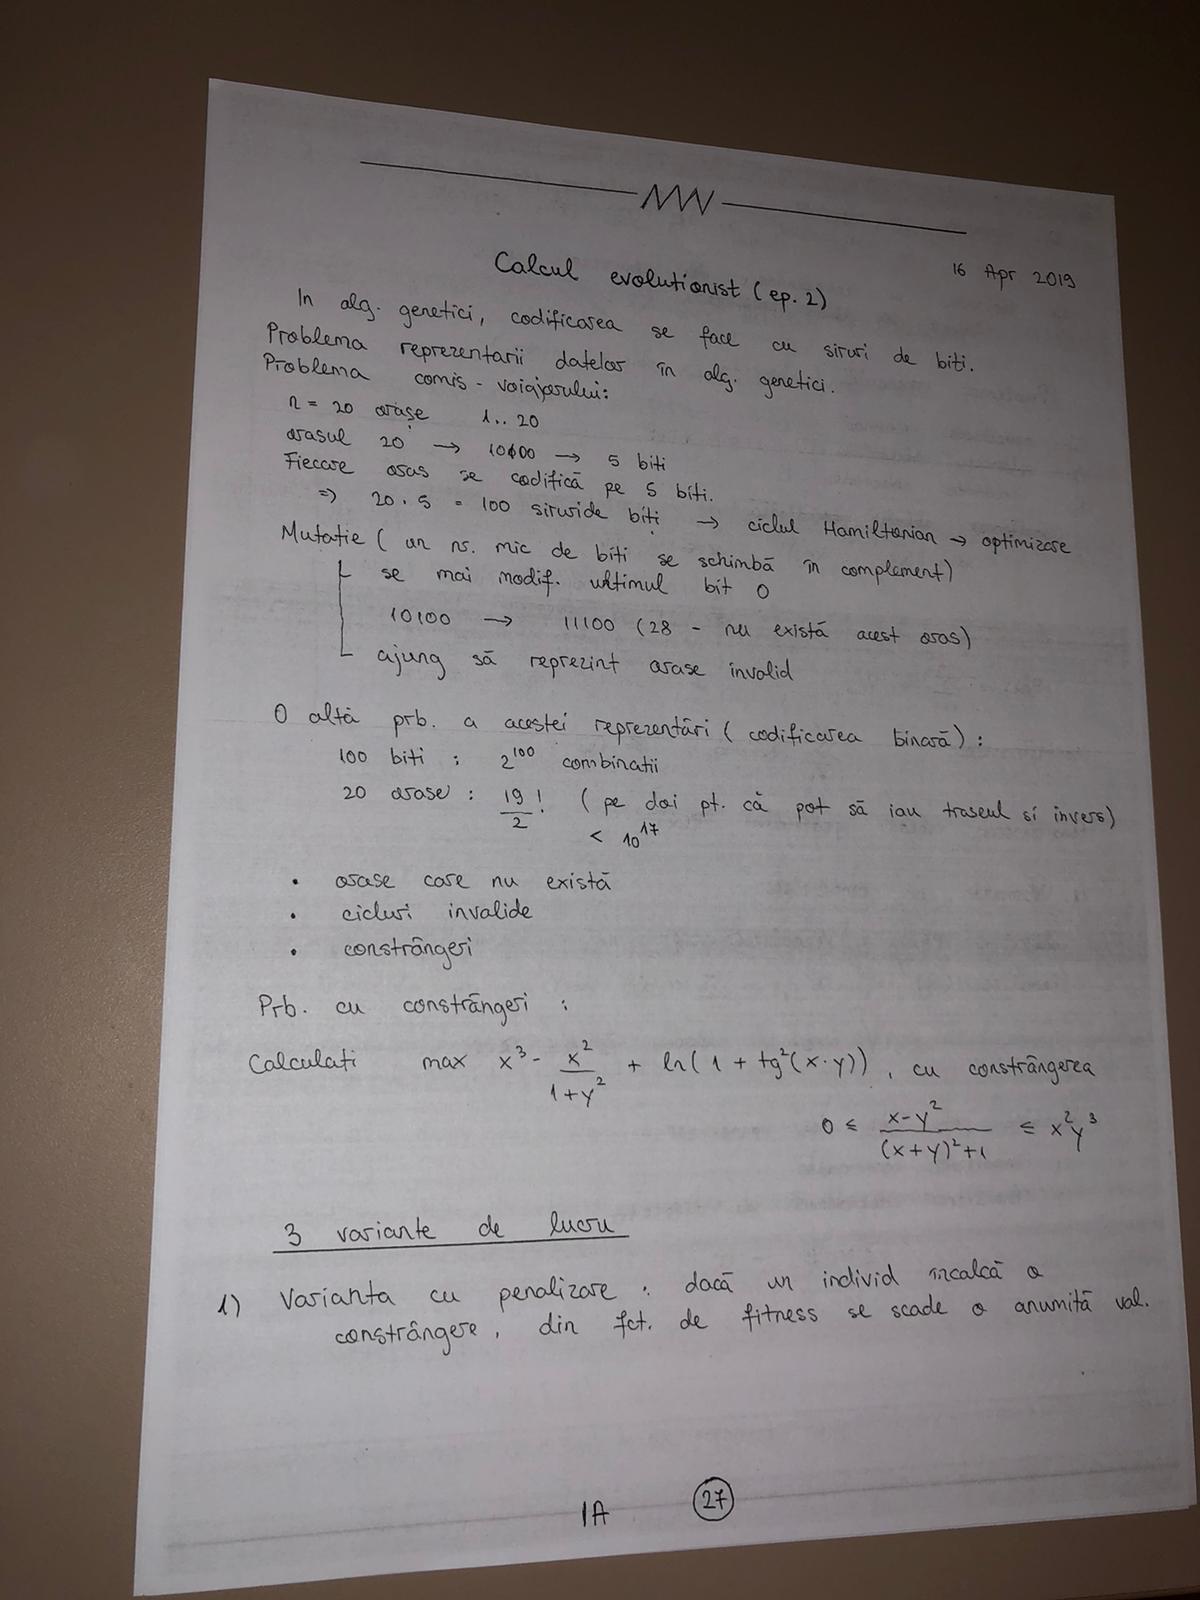 16 Apr 2019
Calcul evolutionist (ep. 2)
In alg. genetici, codificarea se face cu siruri de biti.
Problema reprezentarii datelor în alg. genetici.
Problema comis-voiajorului:
n = 20 orașe 1..20
orasul 20 → 10100 → 5 biti
Fiecare oras se codifică pe 5 biti.
=> 20 · 5 = 100 siruride biti → ciclul Hamiltonian → optimizare
Mutatie ( un nr. mic de biti se schimbă în complement)
se mai modif. ultimul bit 0
10100 → 11100 (28 - nu există acest oras)
ajung să reprezint orase invalid
O altă prb. a acestei reprezentări ( codificarea binară) :
100 biti : 2^100 combinatii
20 orase : 19!/2 ( pe doi pt. că pot să iau traseul si invers)
< 10^17
• orase care nu există
• cicluri invalide
• constrângeri
Prb. cu constrângeri :
Calculati max x^3 - x^2/(1+y^2) + ln( 1 + tg^2(x·y)) , cu constrângerea
0 ≤ (x-y^2)/((x+y)^2+1) ≤ x^2y^3
3 variante de lucru
1) Varianta cu penalizare : dacă un individ încalcă o
constrângere, din fct. de fitness se scade o anumită val.
IA 27